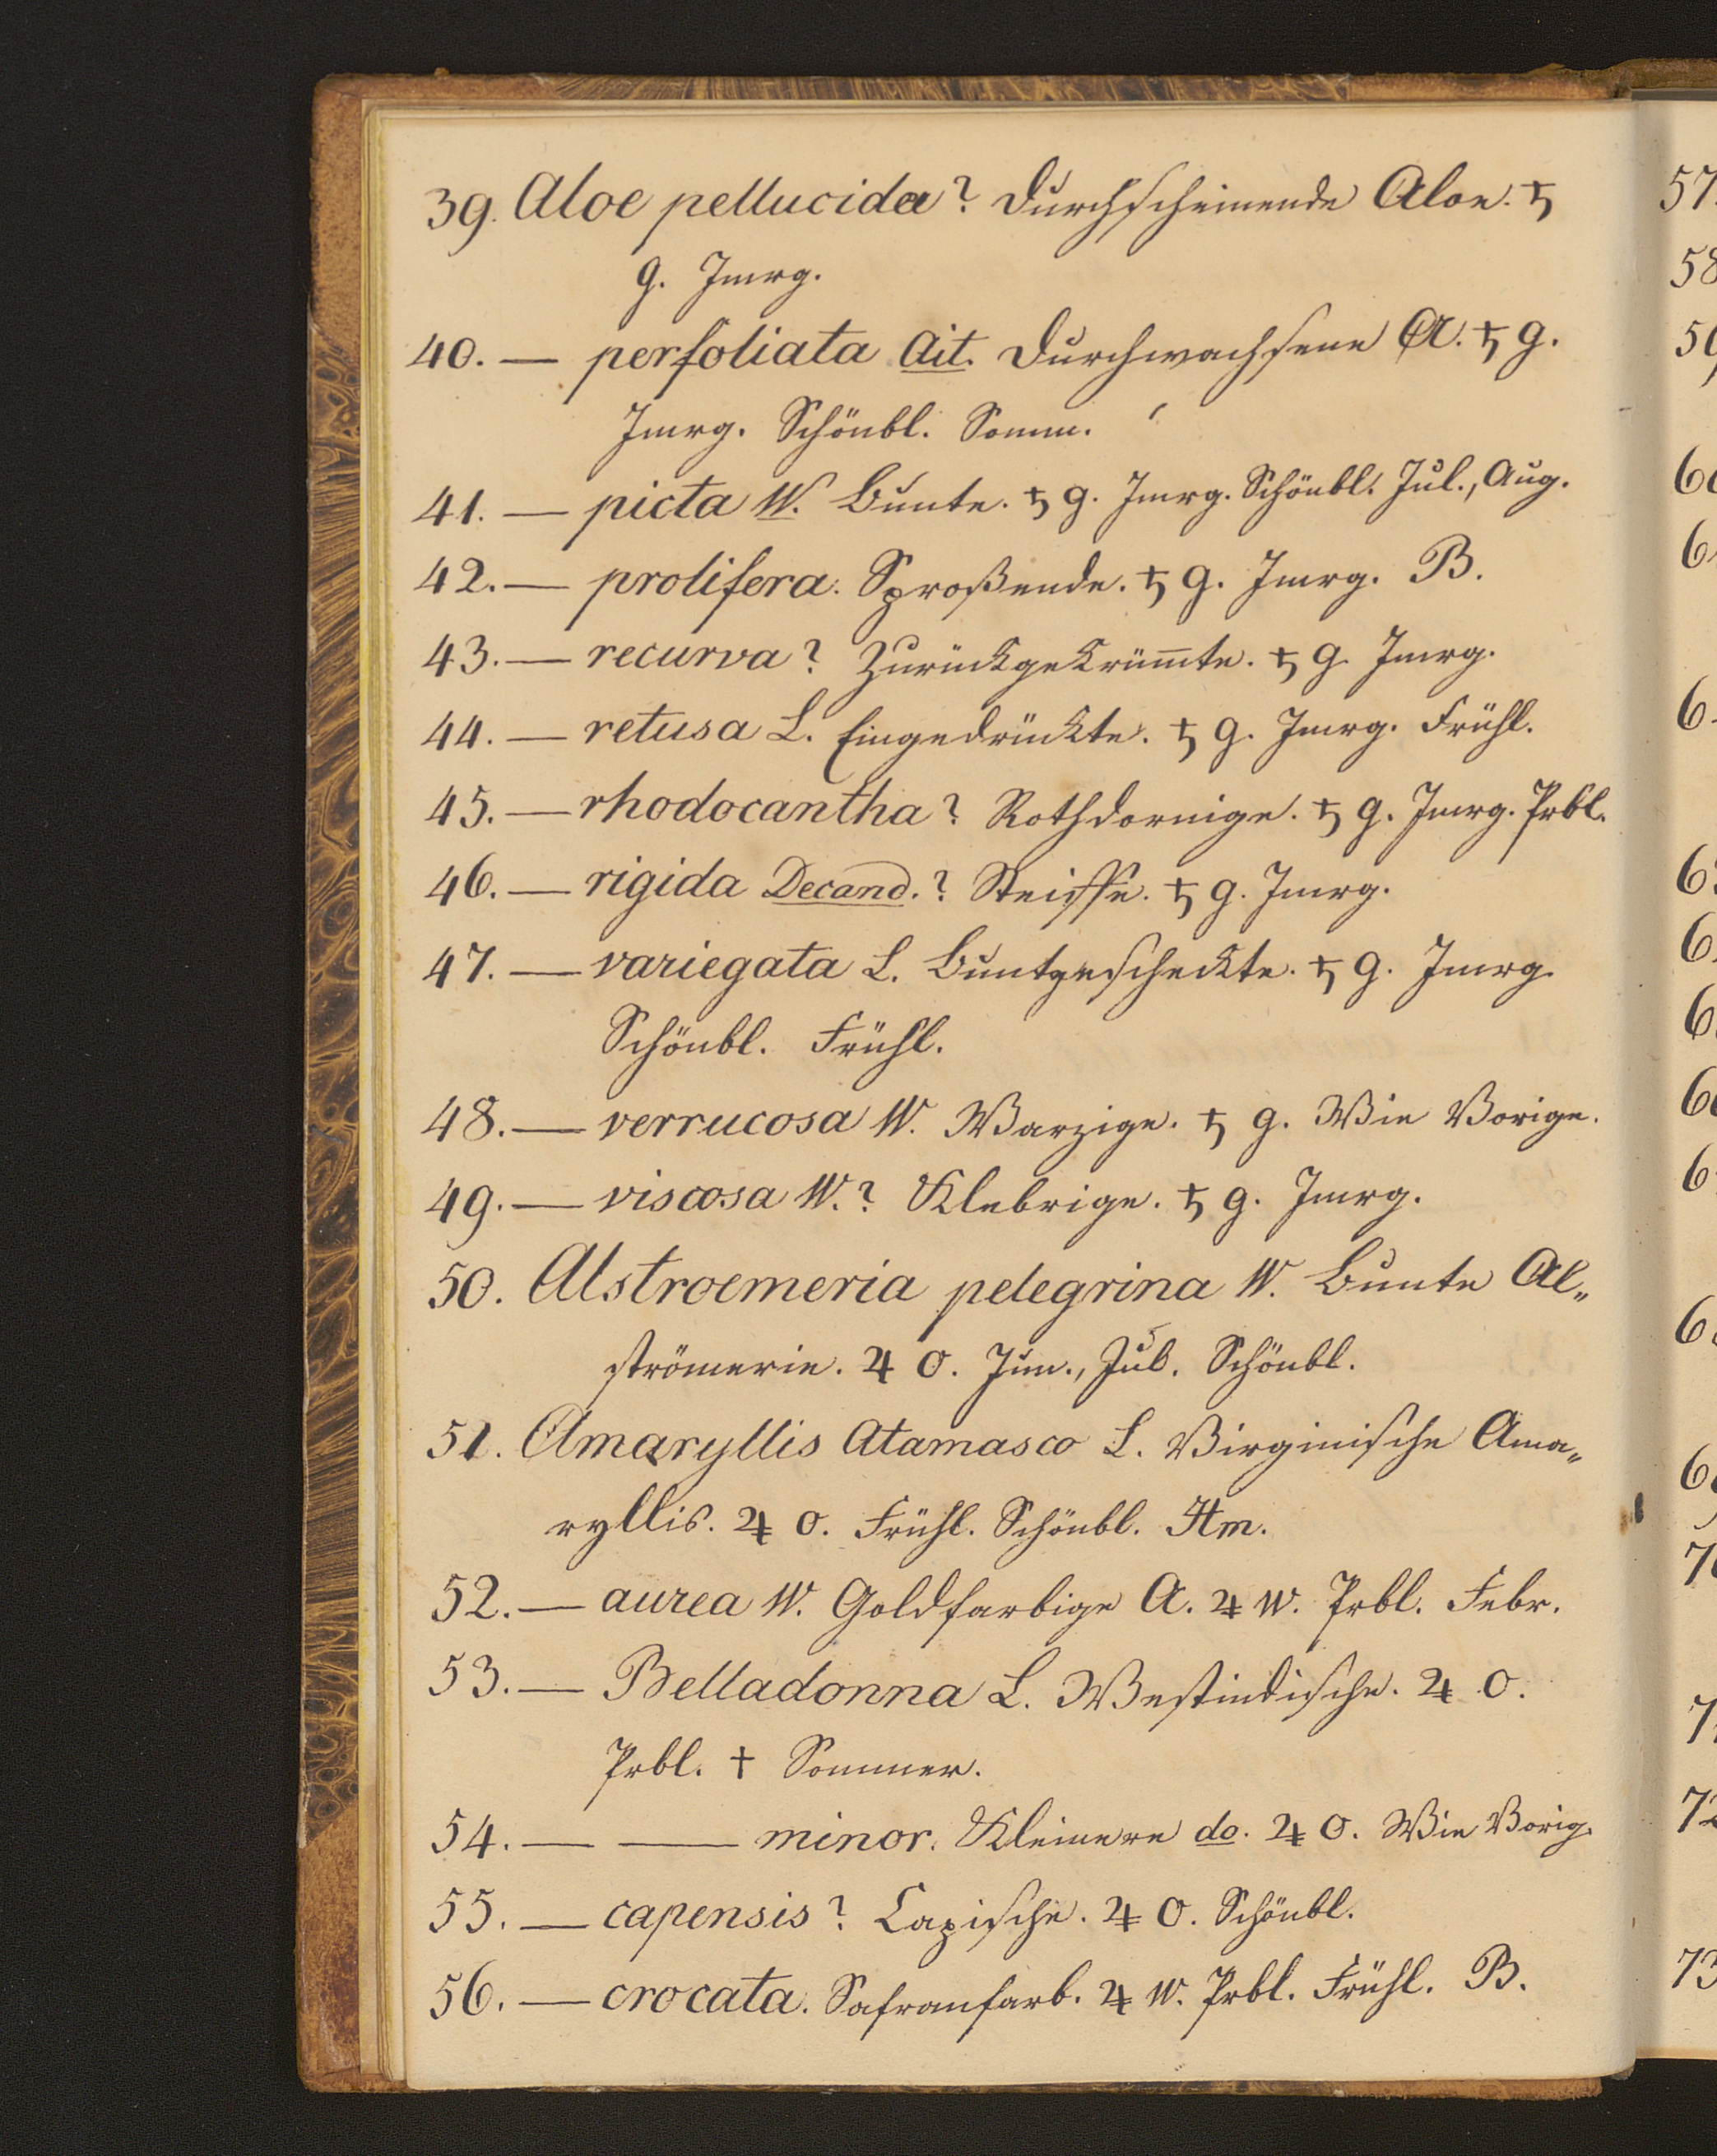 39. Aloe pellucida? Durchscheinende Aloe. ♄
g. Jmrg.
40. — perfoliata Ait. Durchwachsene A. ♄ g.
Jmrg. Schönbl. Somm.
41. — picta W. Bunte. ♄ g. Jmrg. Schönbl. Jul., Aug.
42. — prolifera. Sproßende. ♄ g. Jmrg. B.
43. — recurva? Zurückgekrüm̄te. ♄ g. Jmrg.
44. — retusa L. Eingedrückte. ♄ g. Jmrg. Frühl.
45. — rhodocantha? Rothdornige. ♄ g. Jmrg. Prbl.
46. — rigida Decand.? Steiffe. ♄ g. Jmrg.
47. — variegata L. Buntgescheckte. ♄ g. Jmrg.
Schönbl. Frühl.
48. — verrucosa W. Warzige. ♄ g. Wie Vorige.
49. — viscosa W.? Klebrige. ♄ g. Jmrg.
50. Alstroemeria pelegrina W. Bunte Al„
strömerie. ♃ O. Jun., Jul. Schönbl.
51. Amaryllis Atamasco L. Virginische Ama„
ryllis. ♃ O. Frühl. Schönbl. Hm.
52. — aurea W. Goldfarbige A. ♃ W. Prbl. Febr.
53. — Belladonna L. Westindische. ♃ O.
Prbl. † Sommer.
54. — — minor. Kleinere do. ♃ O. Wie Vorig.
55. — capensis? Capische. ♃ O. Schönbl.
56. — crocata. Safranfarb. ♃ W. Prbl. Frühl. B.
57.
58
72
73